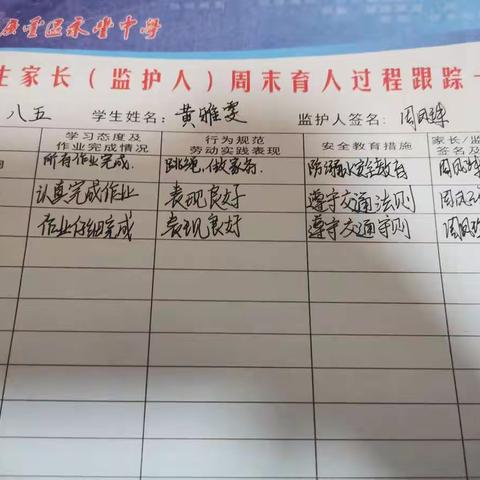 永中学
生家长（监护人）周末育人过程跟踪
八五 学生姓名：黄雅雯 监护人签名：周凤
学习态度及作业完成情况 行为规范劳动实践表现 安全教育措施 家长/监签名及
所有作业完成. 跳绳,做家务. 防溺水安全教育 周凤
认真完成作业 表现良好 遵守交通法则 周凤
作业仔细完成 表现良好 遵守交通守则 周凤